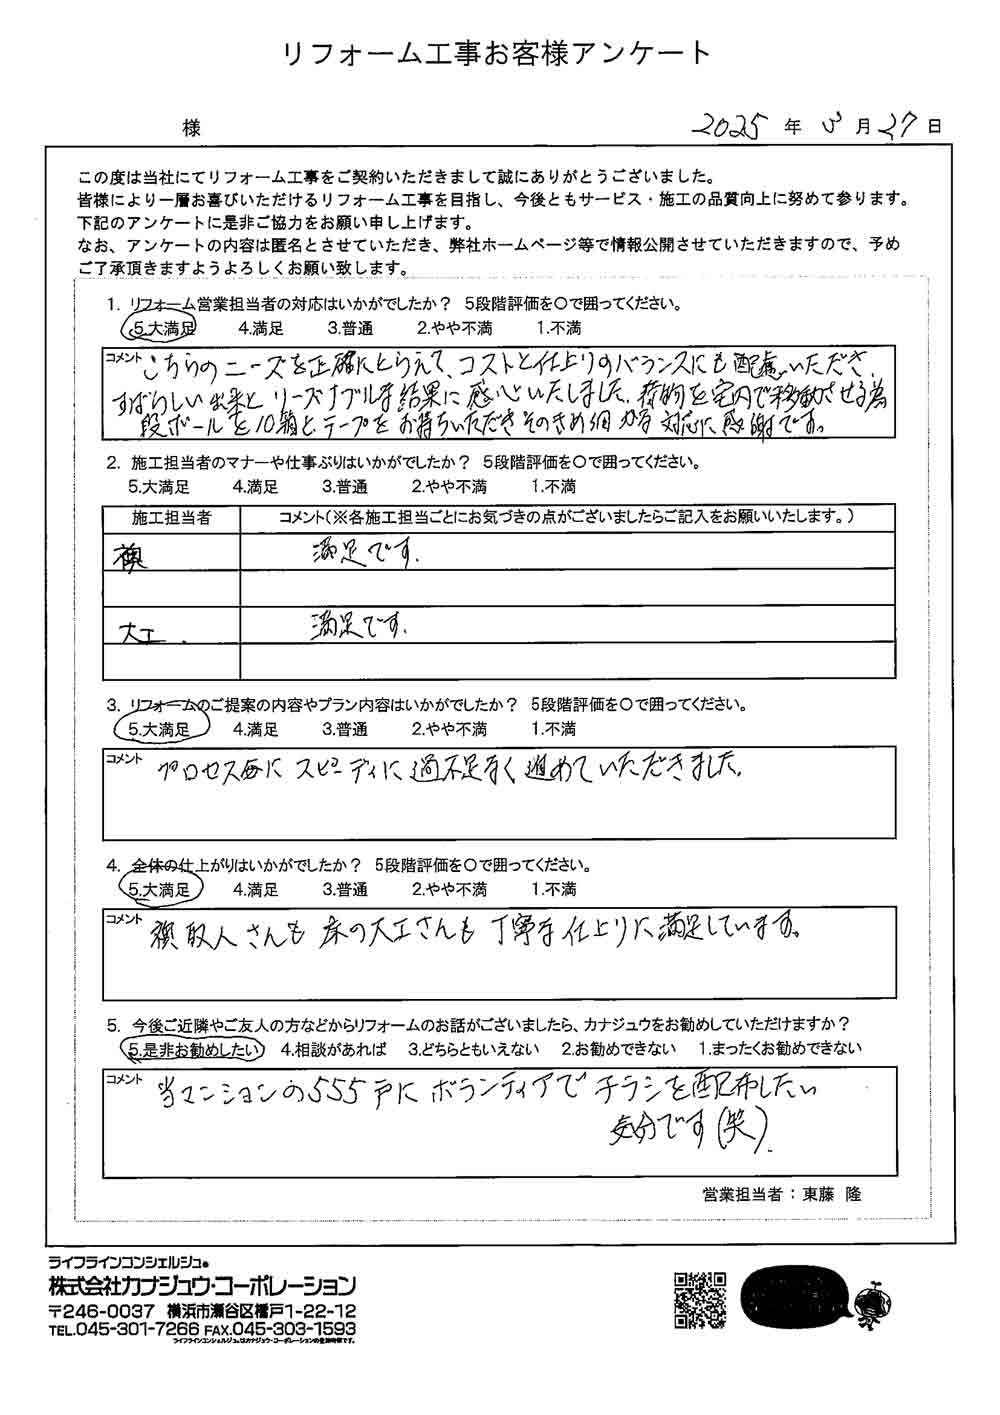 リフォーム工事お客様アンケート
様 2025年3月27日
この度は当社にてリフォーム工事をご契約いただきまして誠にありがとうございました。
皆様により一層お喜びいただけるリフォーム工事を目指し、今後ともサービス・施工の品質向上に努めて参ります。
下記のアンケートに是非ご協力をお願い申し上げます。
なお、アンケートの内容は匿名とさせていただき、弊社ホームページ等で情報公開させていただきますので、予め
ご了承頂きますようよろしくお願い致します。
1. リフォーム営業担当者の対応はいかがでしたか? 5段階評価を〇で囲ってください。
5.大満足 4.満足 3.普通 2.やや不満 1.不満
コメント こちらのニーズを正確にとらえて、コストと仕上りのバランスにも配慮いただき、
すばらしい出来とリーズナブルな結果に感心いたしました。荷物を宅内で移動させる為
段ボールを10箱とテープをお持ちいただききめ細かな対応に感謝です。
2. 施工担当者のマナーや仕事ぶりはいかがでしたか? 5段階評価を〇で囲ってください。
5.大満足 4.満足 3.普通 2.やや不満 1.不満
施工担当者 コメント(※各施工担当ごとにお気づきの点がございましたらご記入をお願いいたします。)
満足です。
大工. 満足です.
3. リフォームのご提案の内容やプラン内容はいかがでしたか? 5段階評価を〇で囲ってください。
5.大満足 4.満足 3.普通 2.やや不満 1.不満
コメント プロセス毎にスピーディに過不足なく進めていただきました。
4. 全体の仕上がりはいかがでしたか? 5段階評価を〇で囲ってください。
5.大満足 4.満足 3.普通 2.やや不満 1.不満
コメント さんも床の大工さんも丁寧な仕上りに満足しています。
5. 今後ご近隣やご友人の方などからリフォームのお話がございましたら、カナジュウをお勧めしていただけますか?
5.是非お勧めしたい 4.相談があれば 3.どちらともいえない 2.お勧めできない 1.まったくお勧めできない
コメント 当マンションの555戸にボランティアでチラシを配布したい
気分です(笑)
営業担当者:東藤 隆
ライフラインコンシェルジュ®
株式会社カナジュウ・コーポレーション
〒246-0037 横浜市瀬谷区橋戸1-22-12
TEL.045-301-7266 FAX.045-303-1593
ライフラインコンシェルジュはカナジュウ・コーポレーションの登録商標です。